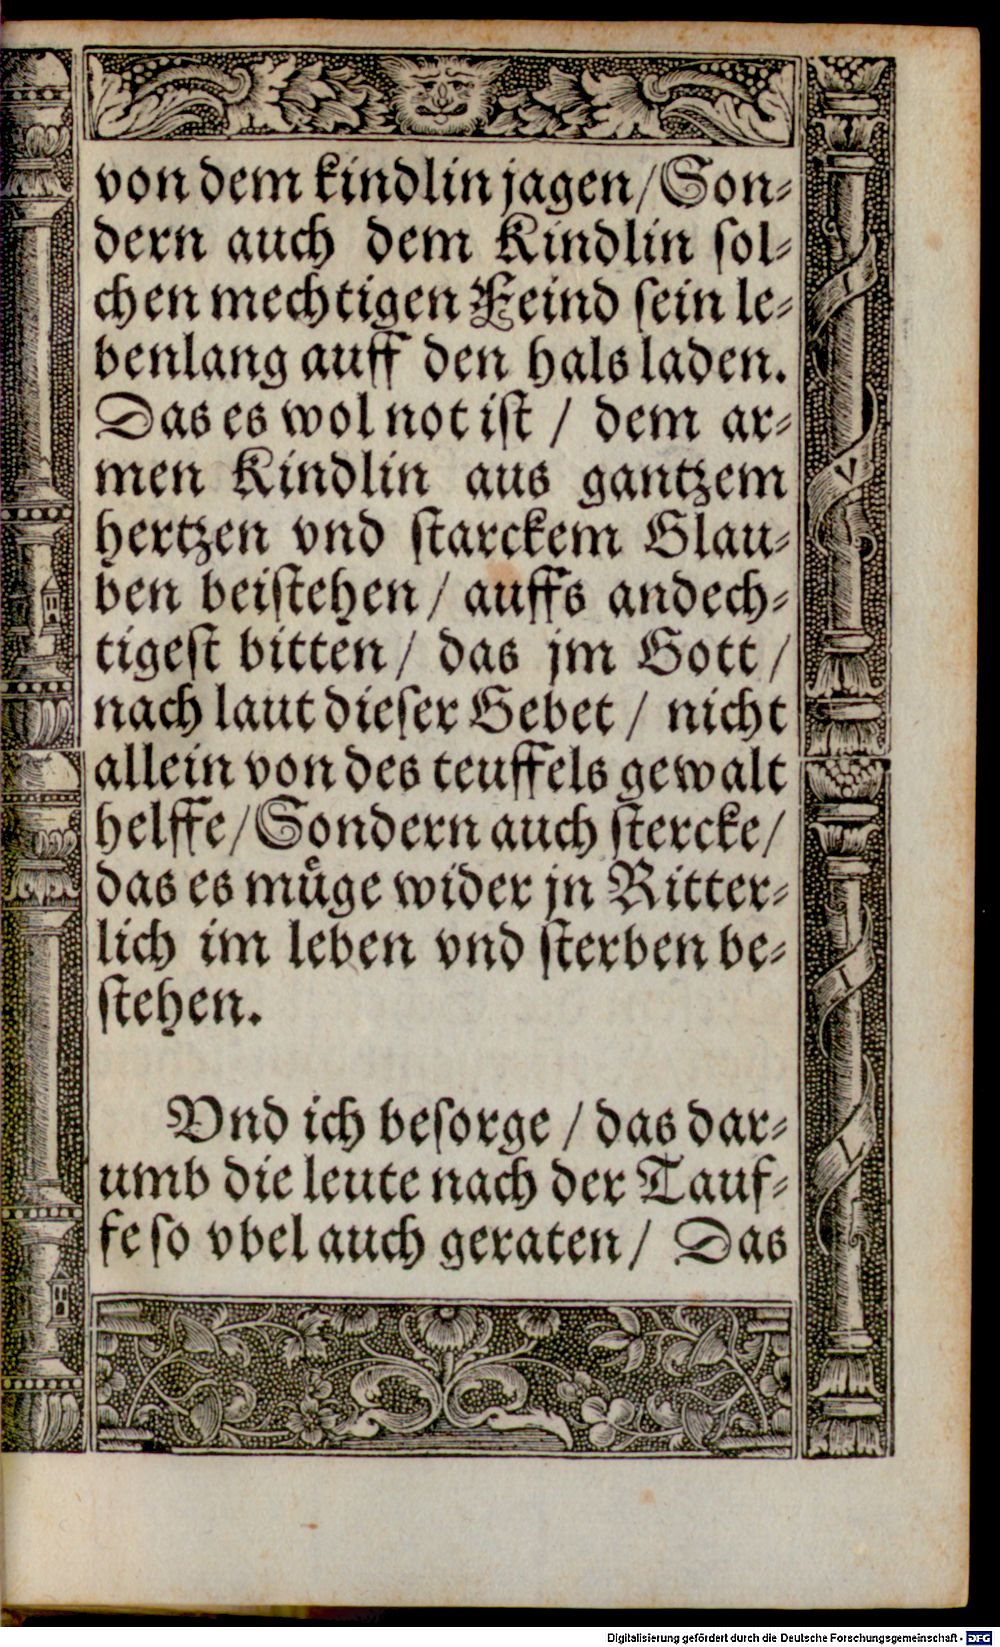 von dem kindlin jagen/ Son⸗
dern auch dem Kindlin ſol⸗
chen mechtigen Feind ſein le⸗
benlang auff den hals laden.
Das es wol not iſt / dem ar⸗
men Kindlin aus gantzem
hertzen vnd ſtarckem Glau⸗
ben beiſtehen / auffs andech⸗
tigeſt bitten / das jm Gott /
nach laut dieſer Gebet / nicht
allein von des teuffels gewalt
helffe/ Sondern auch ſtercke/
das es muͤge wider jn Ritter⸗
lich im leben vnd ſterben be⸗
ſtehen.
Vnd ich beſorge / das dar⸗
umb die leute nach der Tauf⸗
fe ſo vbel auch geraten/ Das
Digitalisierung gefördert durch die Deutsche Forschungsgemeinschaft - DFG